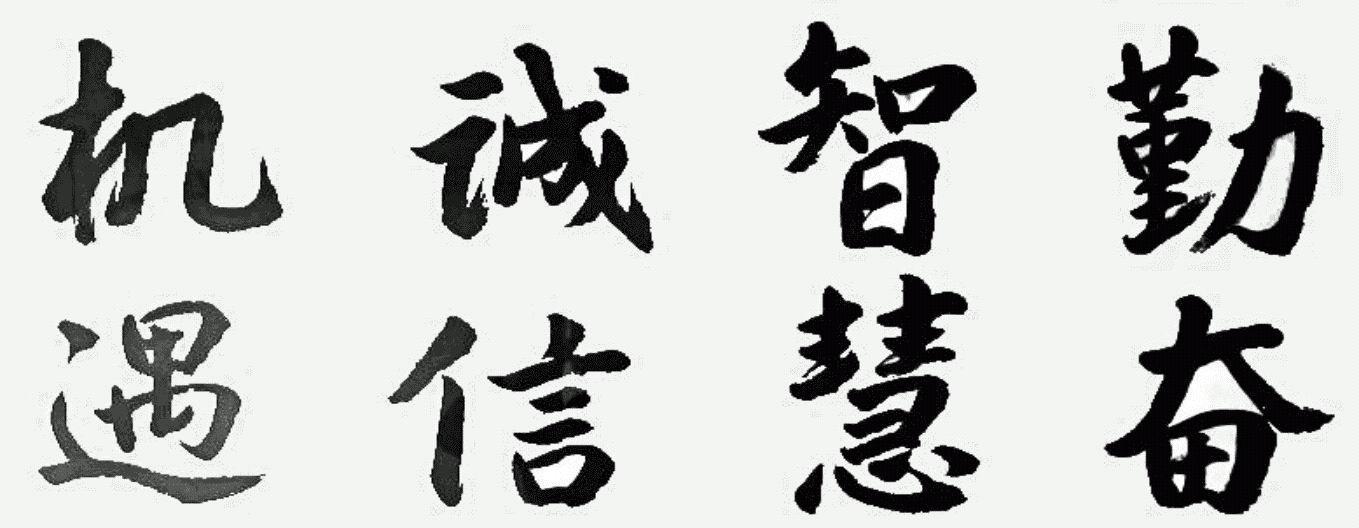 勤奋
智慧
诚信
机遇